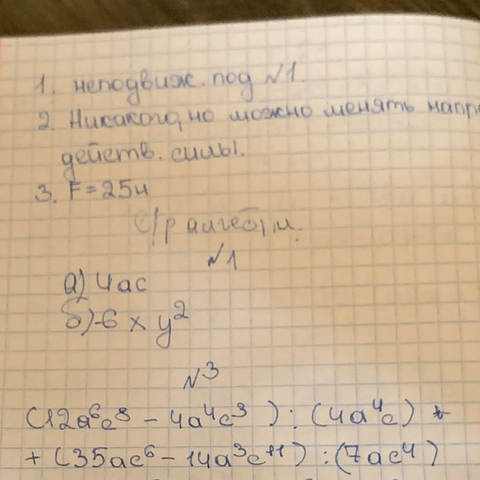 1. неподвиж. под №1.
2. Никакого, но можно менять напр
действ. силы.
3. F = 25н
С/р алгебр,
№1
а) 4ас
б) -6 х у²
№3
(12a⁶c⁸ - 4a⁴c³) : (4a⁴c) +
+ (35ac⁶ - 14a³c⁺¹¹) : (7ac⁴)